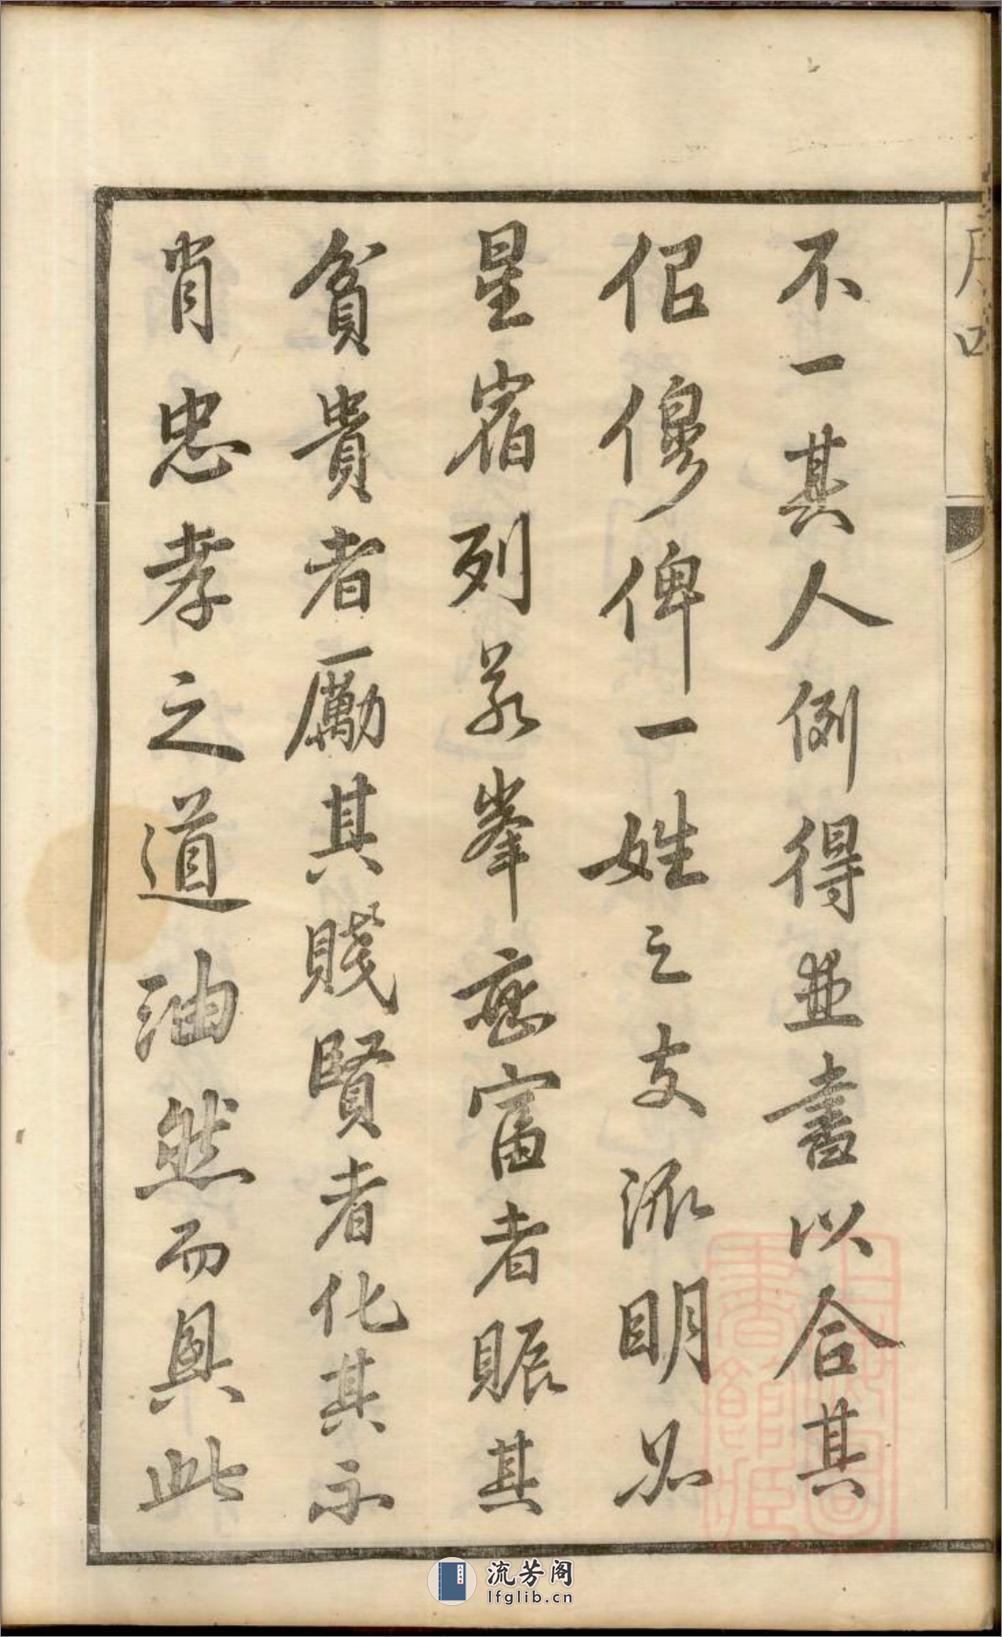 不一其人例得並書以合其
佋穆俾一姓之支派明如
星宿列若峯巒富者賑其
貧貴者勵其賤賢者化其不
肖忠孝之道油然而興此
流芳阁
lfglib.cn